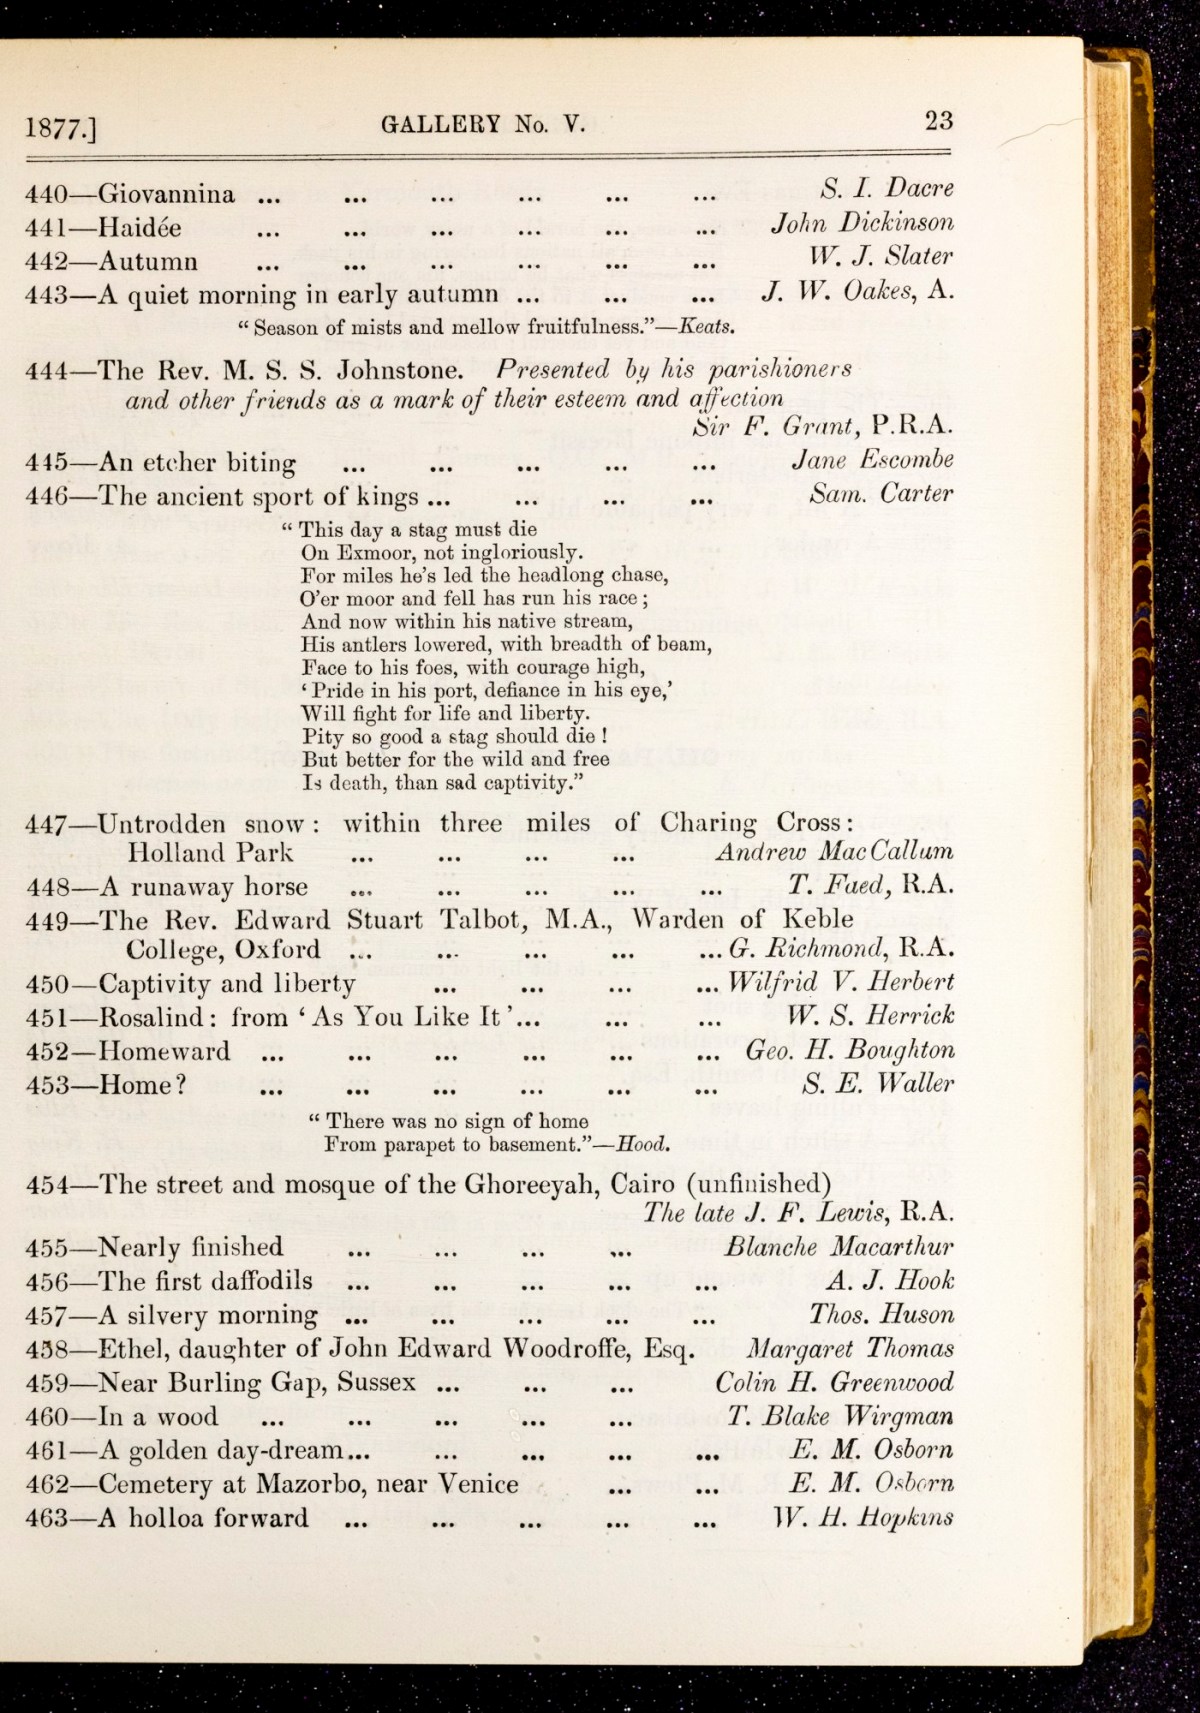 1877.] GALLERY No. V. 23
440—Giovannina ... ... ... ... ... ... S. I. Dacre
441—Haidée ... ... ... ... ... ... John Dickinson
442—Autumn ... ... ... ... ... ... W. J. Slater
443—A quiet morning in early autumn ... ... ... J. W. Oakes, A.
“ Season of mists and mellow fruitfulness.”—Keats.
444—The Rev. M. S. S. Johnstone. Presented by his parishioners
and other friends as a mark of their esteem and affection
Sir F. Grant, P.R.A.
445—An etcher biting ... ... ... ... ... Jane Escombe
446—The ancient sport of kings ... ... ... ... Sam. Carter
“ This day a stag must die
On Exmoor, not ingloriously.
For miles he’s led the headlong chase,
O’er moor and fell has run his race ;
And now within his native stream,
His antlers lowered, with breadth of beam,
Face to his foes, with courage high,
‘ Pride in his port, defiance in his eye,’
Will fight for life and liberty.
Pity so good a stag should die !
But better for the wild and free
Is death, than sad captivity.”
447—Untrodden snow : within three miles of Charing Cross :
Holland Park ... ... ... ... Andrew MacCallum
448—A runaway horse ... ... ... ... ... T. Faed, R.A.
449—The Rev. Edward Stuart Talbot, M.A., Warden of Keble
College, Oxford ... ... ... ... ... G. Richmond, R.A.
450—Captivity and liberty ... ... ... ... Wilfrid V. Herbert
451—Rosalind : from ‘ As You Like It ’... ... ... W. S. Herrick
452—Homeward ... ... ... ... ... ... Geo. H. Boughton
453—Home ? ... ... ... ... ... ... S. E. Waller
“ There was no sign of home
From parapet to basement.”—Hood.
454—The street and mosque of the Ghoreeyah, Cairo (unfinished)
The late J. F. Lewis, R.A.
455—Nearly finished ... ... ... ... Blanche Macarthur
456—The first daffodils ... ... ... ... ... A. J. Hook
457—A silvery morning ... ... ... ... ... Thos. Huson
458—Ethel, daughter of John Edward Woodroffe, Esq. Margaret Thomas
459—Near Burling Gap, Sussex ... ... ... Colin H. Greenwood
460—In a wood ... ... ... ... ... T. Blake Wirgman
461—A golden day-dream... ... ... ... ... E. M. Osborn
462—Cemetery at Mazorbo, near Venice ... ... E. M. Osborn
463—A holloa forward ... ... ... ... ... W. H. Hopkins